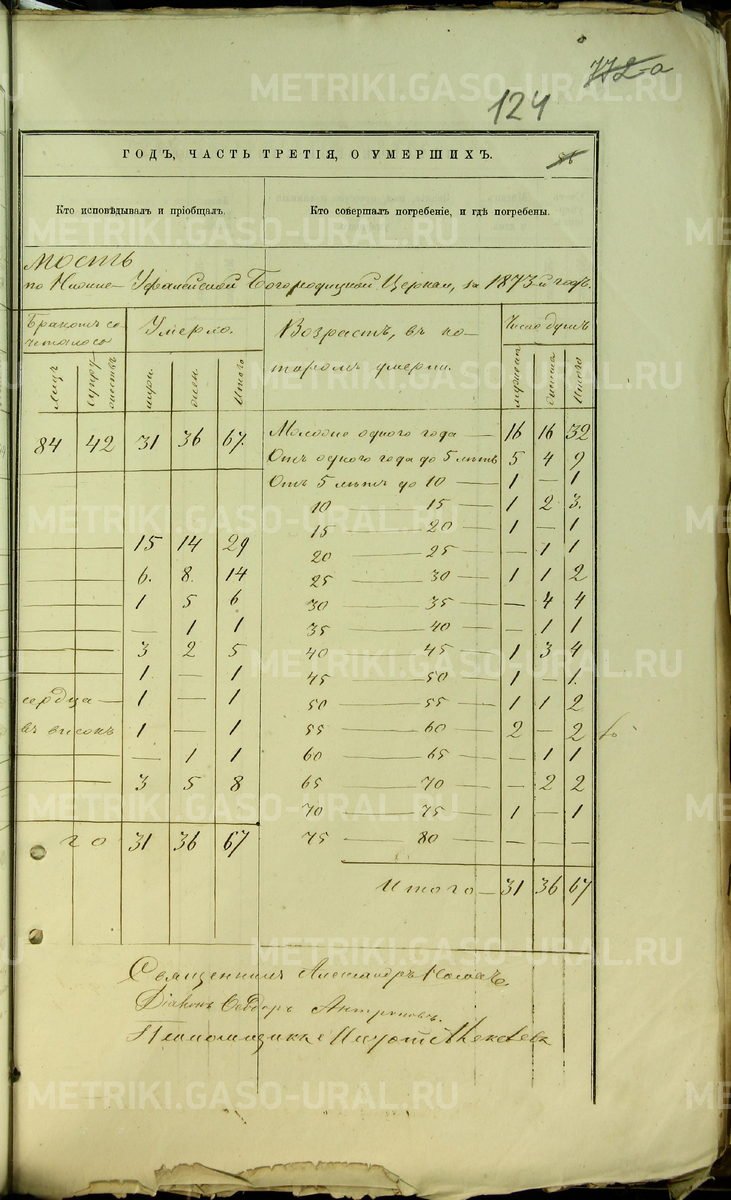 772-а
124
ГОДЪ, ЧАСТЬ ТРЕТІЯ, О УМЕРШИХЪ.
56
Кто исповѣдывалъ и пріобщалъ.
Кто совершалъ погребеніе, и гдѣ погребены.
мость
по Нижне-Уфалейской Богородицкой Церкви, за 1873й годъ.
Бракомъ со
четалось
Умерло.
Возрастъ, въ ко-
торомъ умерли.
Число душъ
Лицъ
Супру
жествъ
муж.
жен.
Итого
мужеск.
женска
Итого
84 42 31 36 67. Моложе одного года — 16 16 32
Отъ одного года до 5 лѣтъ 5 4 9
Отъ 5 лѣтъ до 10 — 1 — 1
10 — 15 — 1 2 3.
15 — 20 — 1 — 1
— — 15 14 29 20 — 25 — — 1 1
— — 6. 8. 14 25 — 30 — 1 1 2
— — 1 5 6 30 — 35 — — 4 4
— — — 1 1 35 — 40 — — 1 1
— — 3 2 5 40 — 45 — 1 3 4
— — 1 — 1 45 — 50 — 1 — 1.
сердца — 1 — 1 50 — 55 — 1 1 2
въ високъ 1 — 1 55 — 60 — 2 — 2
— — — 1 1 60 — 65 — — 1 1
— — 3 5 8 65 — 70 — — 2 2
70 — 75 — 1 — 1
го 31 36 67 75 — 80 — — — —
Итого — 31 36 67
Священникъ Александръ
Діаконъ Ѳеодоръ Антроповъ.
METRIKI.GASO-URAL.RU